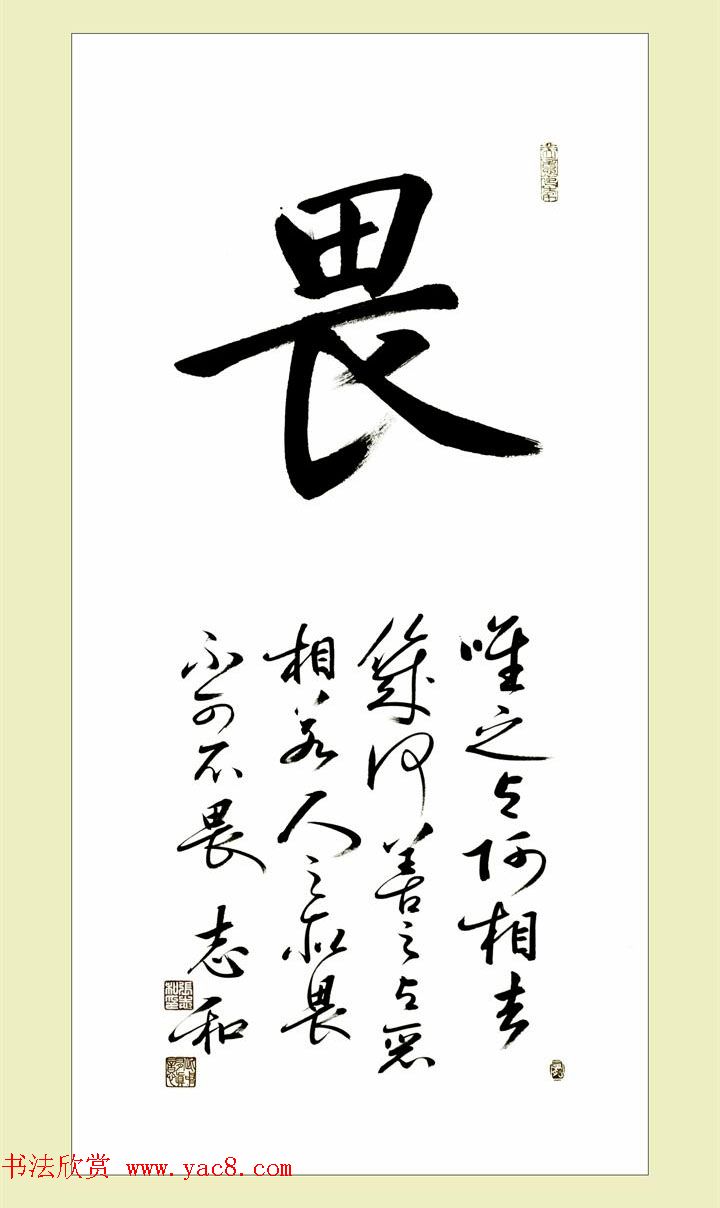 畏
唯之与阿相去
几何善之与恶
相若人之所畏
不可不畏 志和
张志和印
书法欣赏 www.yac8.com